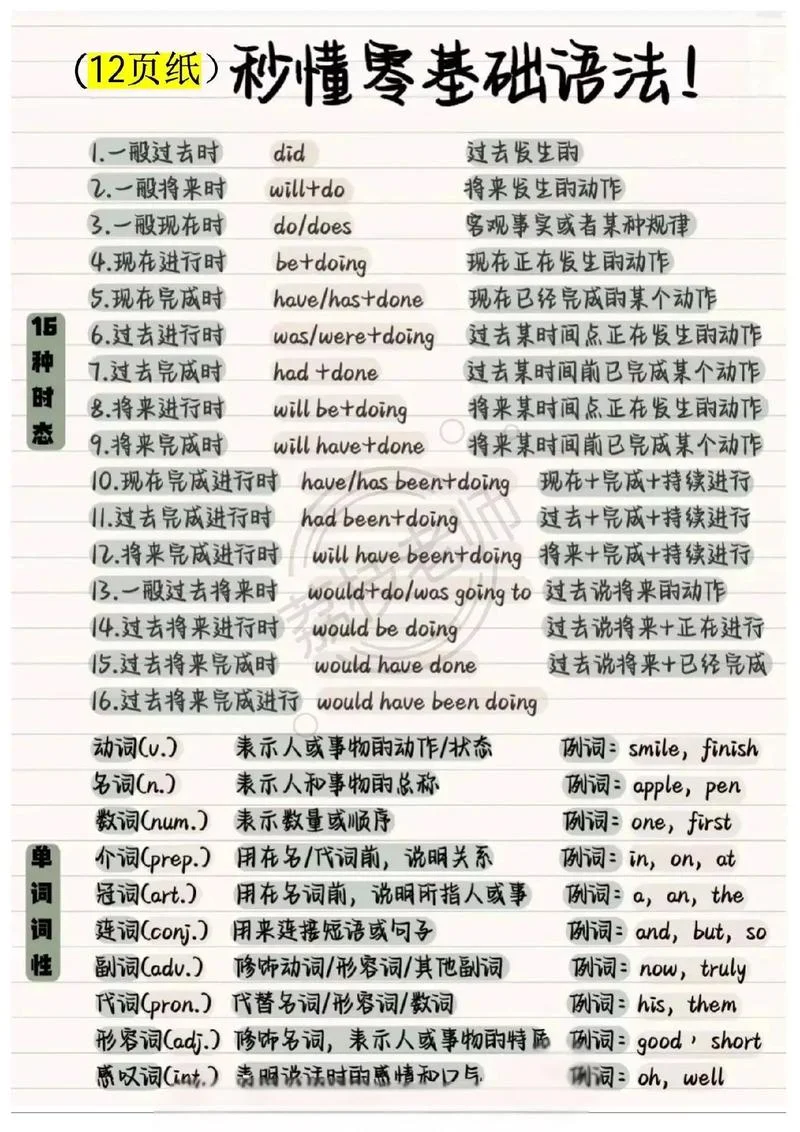 (12页纸) 秒懂零基础语法!
16种时态
1.一般过去时 did 过去发生的
2.一般将来时 will+do 将来发生的动作
3.一般现在时 do/does 客观事实或者某种规律
4.现在进行时 be+doing 现在正在发生的动作
5.现在完成时 have/has+done 现在已经完成的某个动作
6.过去进行时 was/were+doing 过去某时间点正在发生的动作
7.过去完成时 had +done 过去某时间前已完成某个动作
8.将来进行时 will be+doing 将来某时间点正在发生的动作
9.将来完成时 will have+done 将来某时间前已完成某个动作
10.现在完成进行时 have/has been+doing 现在+完成+持续进行
11.过去完成进行时 had been+doing 过去+完成+持续进行
12.将来完成进行时 will have been+doing 将来+完成+持续进行
13.一般过去将来时 would+do/was going to 过去说将来的动作
14.过去将来进行时 would be doing 过去说将来+正在进行
15.过去将来完成时 would have done 过去说将来+已经完成
16.过去将来完成进行 would have been doing
单词词性
动词(v.) 表示人或事物的动作/状态 例词: smile, finish
名词(n.) 表示人和事物的总称 例词: apple, pen
数词(num.) 表示数量或顺序 例词: one, first
介词(prep.) 用在名/代词前, 说明关系 例词: in, on, at
冠词(art.) 用在名词前, 说明所指人或事 例词: a, an, the
连词(conj.) 用来连接短语或句子 例词: and, but, so
副词(adv.) 修饰动词/形容词/其他副词 例词: now, truly
代词(pron.) 代替名词/形容词/数词 例词: his, them
形容词(adj.) 修饰名词, 表示人或事物的特质 例词: good, short
感叹词(int.) 表明说话时的感情和口气 例词: oh, well
荔枝老师